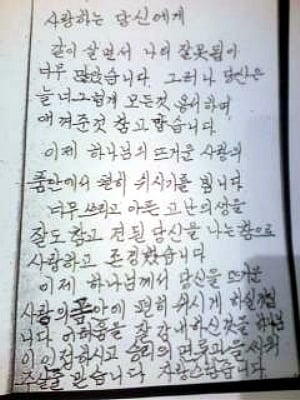 사랑하는 당신에게
같이 살면서 나의 잘못됨이
너무 많았습니다. 그러나 당신은
늘 너그럽게 모든것 용서하며
여겨준것 참고맙습니다
이제 하나님의 뜨거운 사랑의
품안에서 편히 쉬시기를 빕니다
너무 쓰리고 아픈 고난의 생을
잘도 참고 견딘 당신을 나는 참으로
사랑하고 존경했습니다
이제 하나님께서 당신을 뜨거운
사랑의 품안에 편히 쉬시게 하실것입
니다. 어려움을 잘 감내하신것을 하나님
이 인정하시고 승리의 면류관을 씌워
주실줄 믿습니다. 자랑스럽습니다.